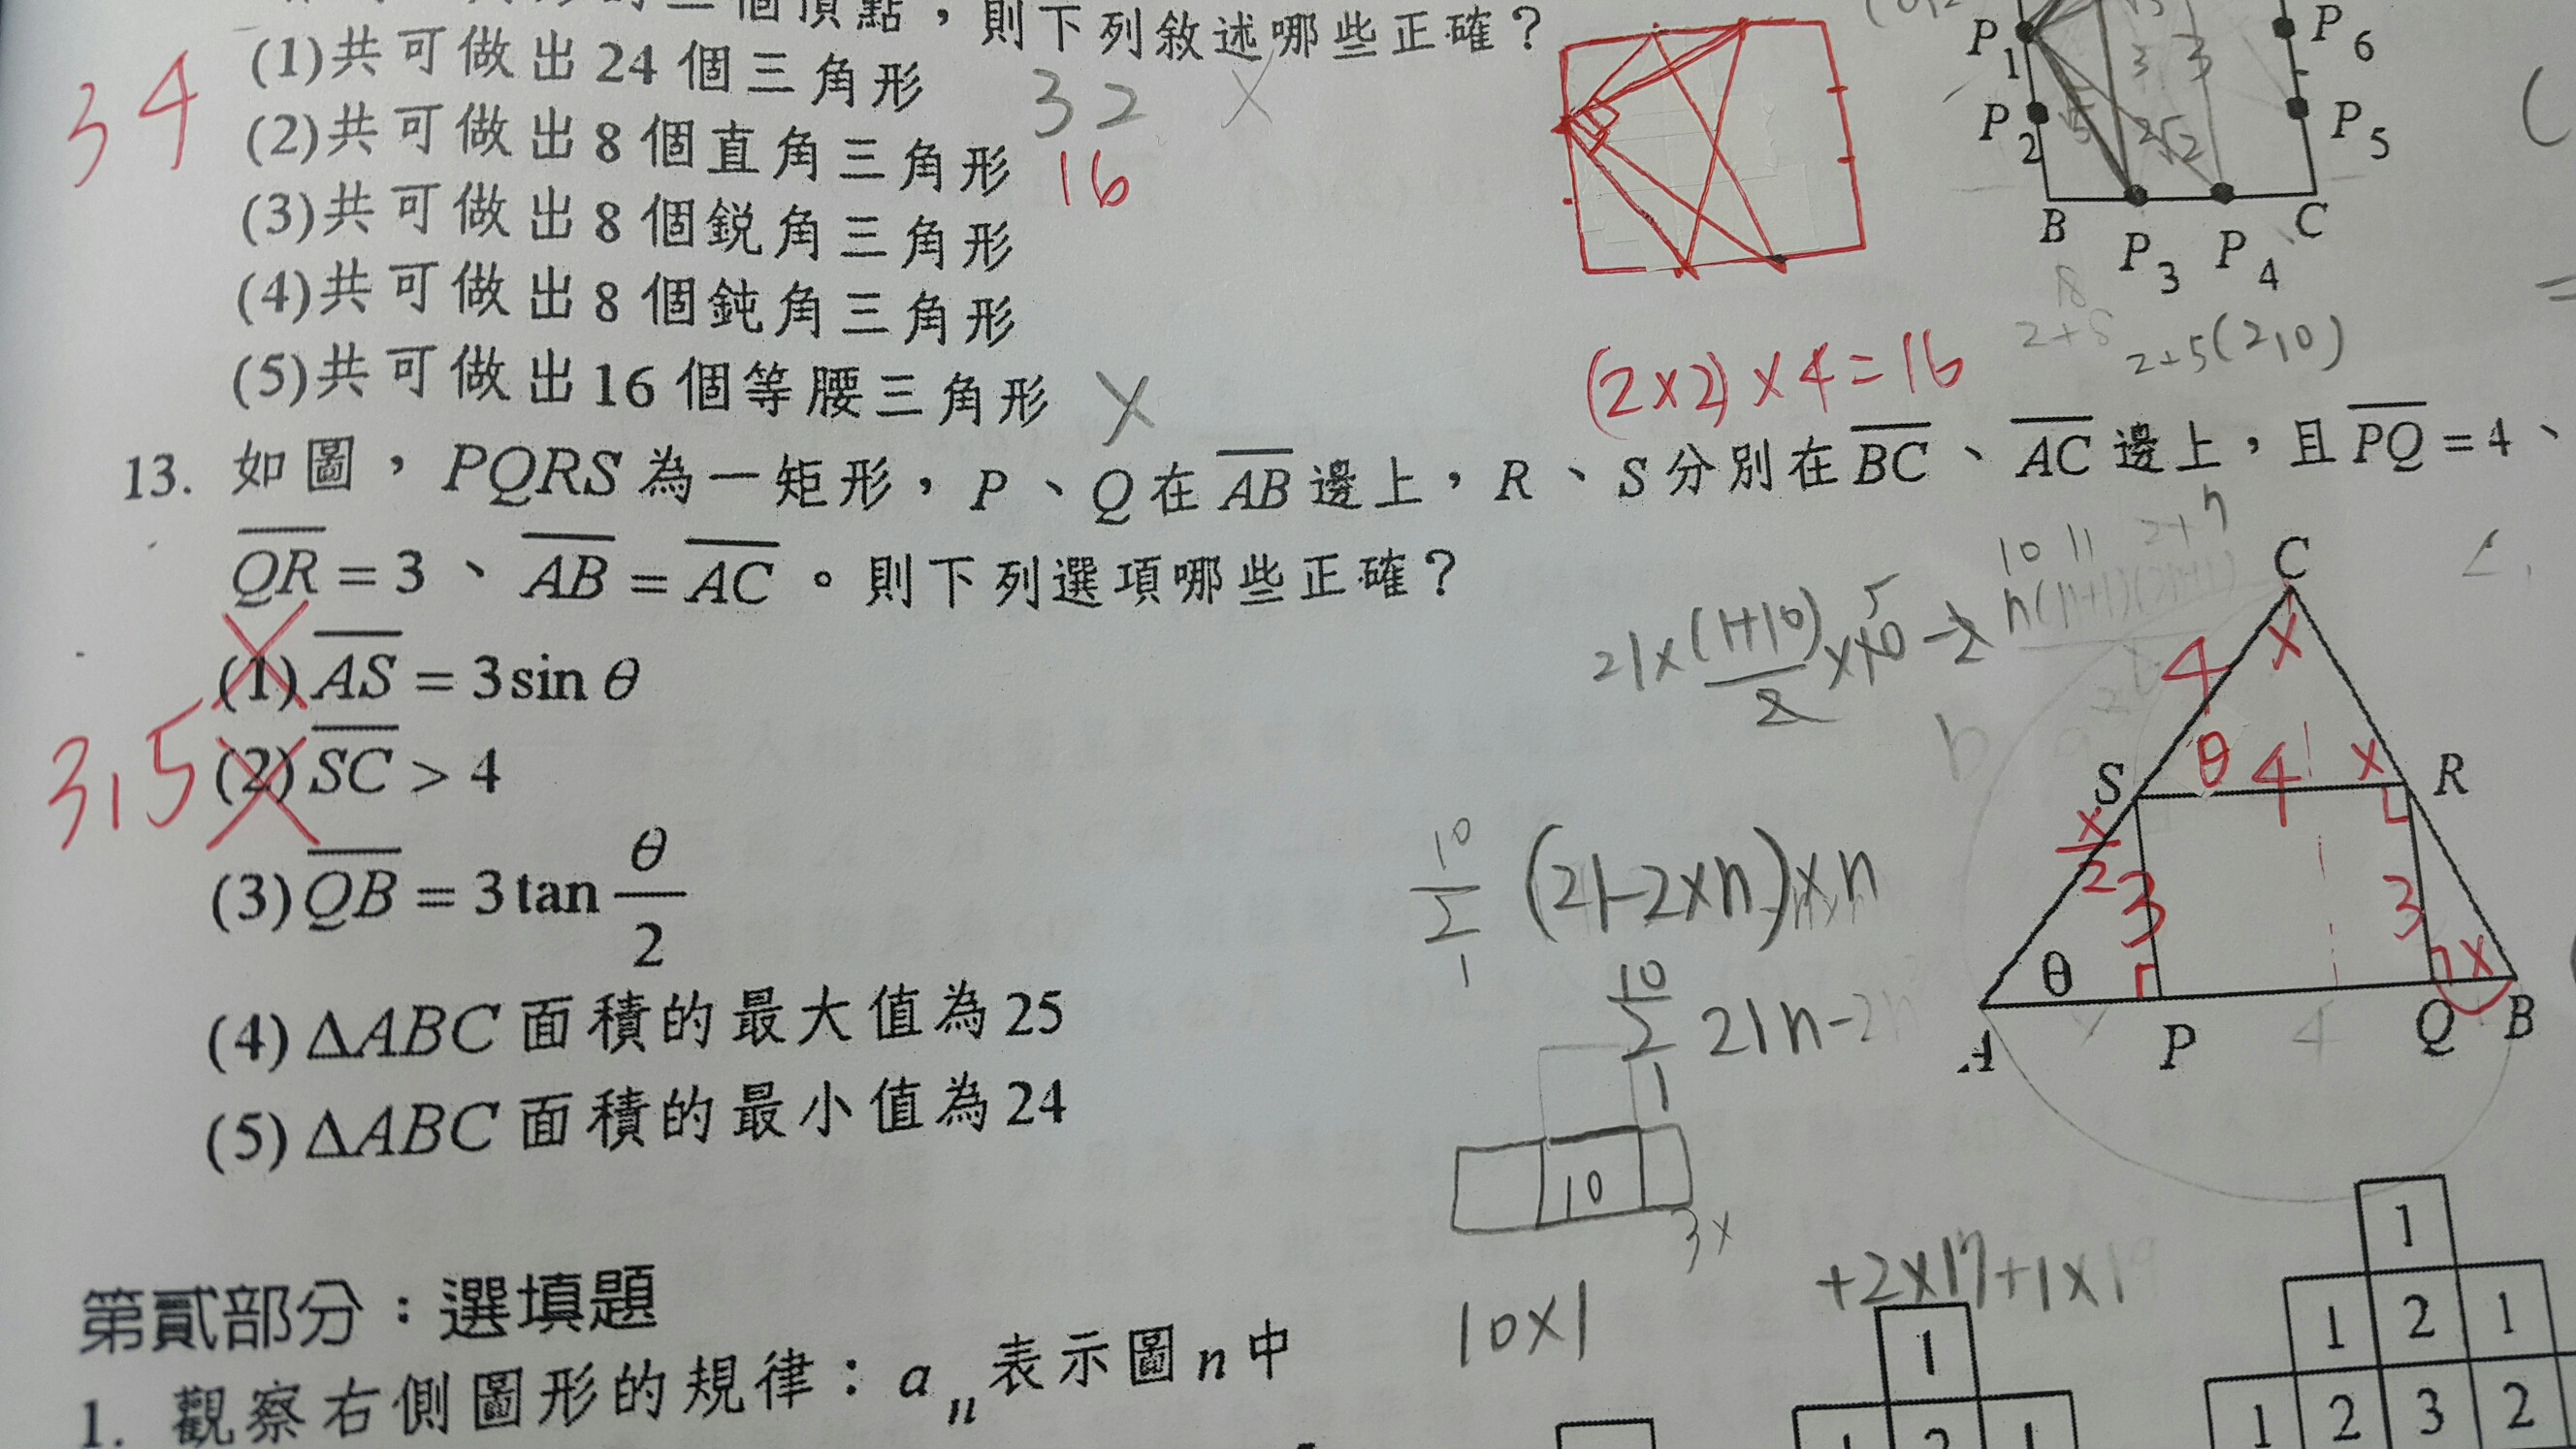 個頂點，則下列敘述哪些正確？
34
(1)共可做出24個三角形 32 X
(2)共可做出8個直角三角形 16
(3)共可做出8個銳角三角形
(4)共可做出8個鈍角三角形
(5)共可做出16個等腰三角形 X
P1
P2
B
P3
P4
C
P5
P6
3 3
5 2√2
18
2+5(2,10)
(2×2)×4=16
13. 如圖，PQRS為一矩形，P、Q在AB邊上，R、S分別在BC、AC邊上，且PQ=4、
QR=3、AB=AC。則下列選項哪些正確？
3,5
(1) AS = 3sin θ
(2) SC > 4
(3) QB = 3tan θ/2
(4) ΔABC面積的最大值為25
(5) ΔABC面積的最小值為24
10 11
C
4 x
θ 4 x
S R
3 3
θ x
A P Q B
10
Σ (21-2×n)×n
1
10
Σ 21n-2
1
10
3x
10×1
+2×17+1×1
第貳部分：選填題
1. 觀察右側圖形的規律：an表示圖n中
1
1 2 1
1 2 3 2
1